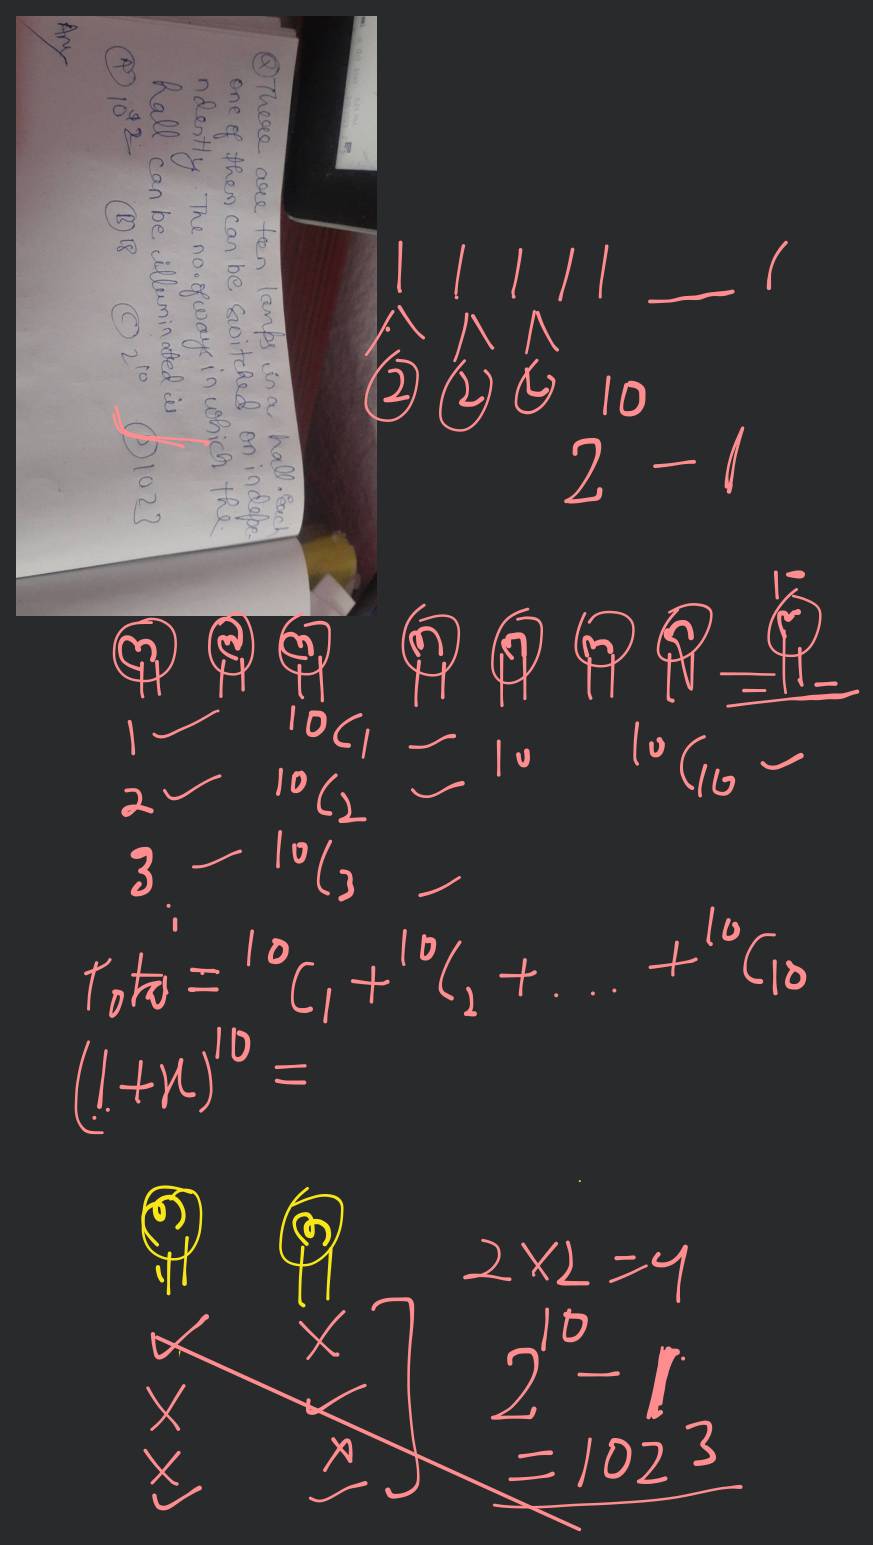 Q) There are ten lamps in a hall. Each
one of them can be switched on indepe-
ndently. The no. of ways in which the
hall can be illuminated is
(A) 10^2 (B) 18 (C) 2^10 (D) 1023
Ans
1 1 1 1 1 — 1
2 2 2
2^10 - 1
1 — 10C1 = 10 10C10
2 — 10C2
3 — 10C3
Total = 10C1 + 10C2 + ... + 10C10
(1+x)^10 =
2×2=4
2^10 - 1
= 1023